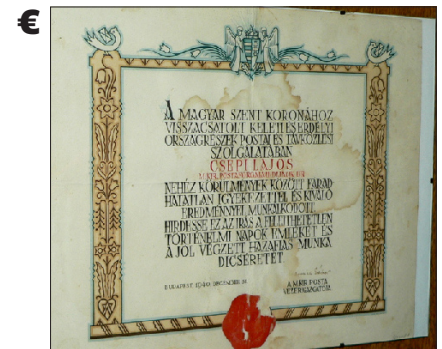 €
A MAGYAR SZENT KORONÁHOZ
VISSZACSATOLT KELETI ÉS ERDÉLYI
ORSZÁGRÉSZEK POSTAI ÉS TÁVKÖZLÉSI
SZOLGÁLATÁBAN
CSEPI LAJOS
NEHÉZ KÖRÜLMÉNYEK KÖZÖTT FÁRAD
HATATLAN IGYEKEZETTEL ÉS KIVÁLÓ
EREDMÉNNYEL MUNKÁLKODOTT.
HIRDESSE EZ AZ ÍRÁS A FELEJTHETETLEN
TÖRTÉNELMI NAPOK EMLÉKÉT ÉS
A JÓL VÉGZETT HAZAFIAS MUNKA
DICSÉRETÉT
BUDAPEST, 1940 DECEMBER
A M. KIR. POSTA
VEZÉRIGAZGATÓJA